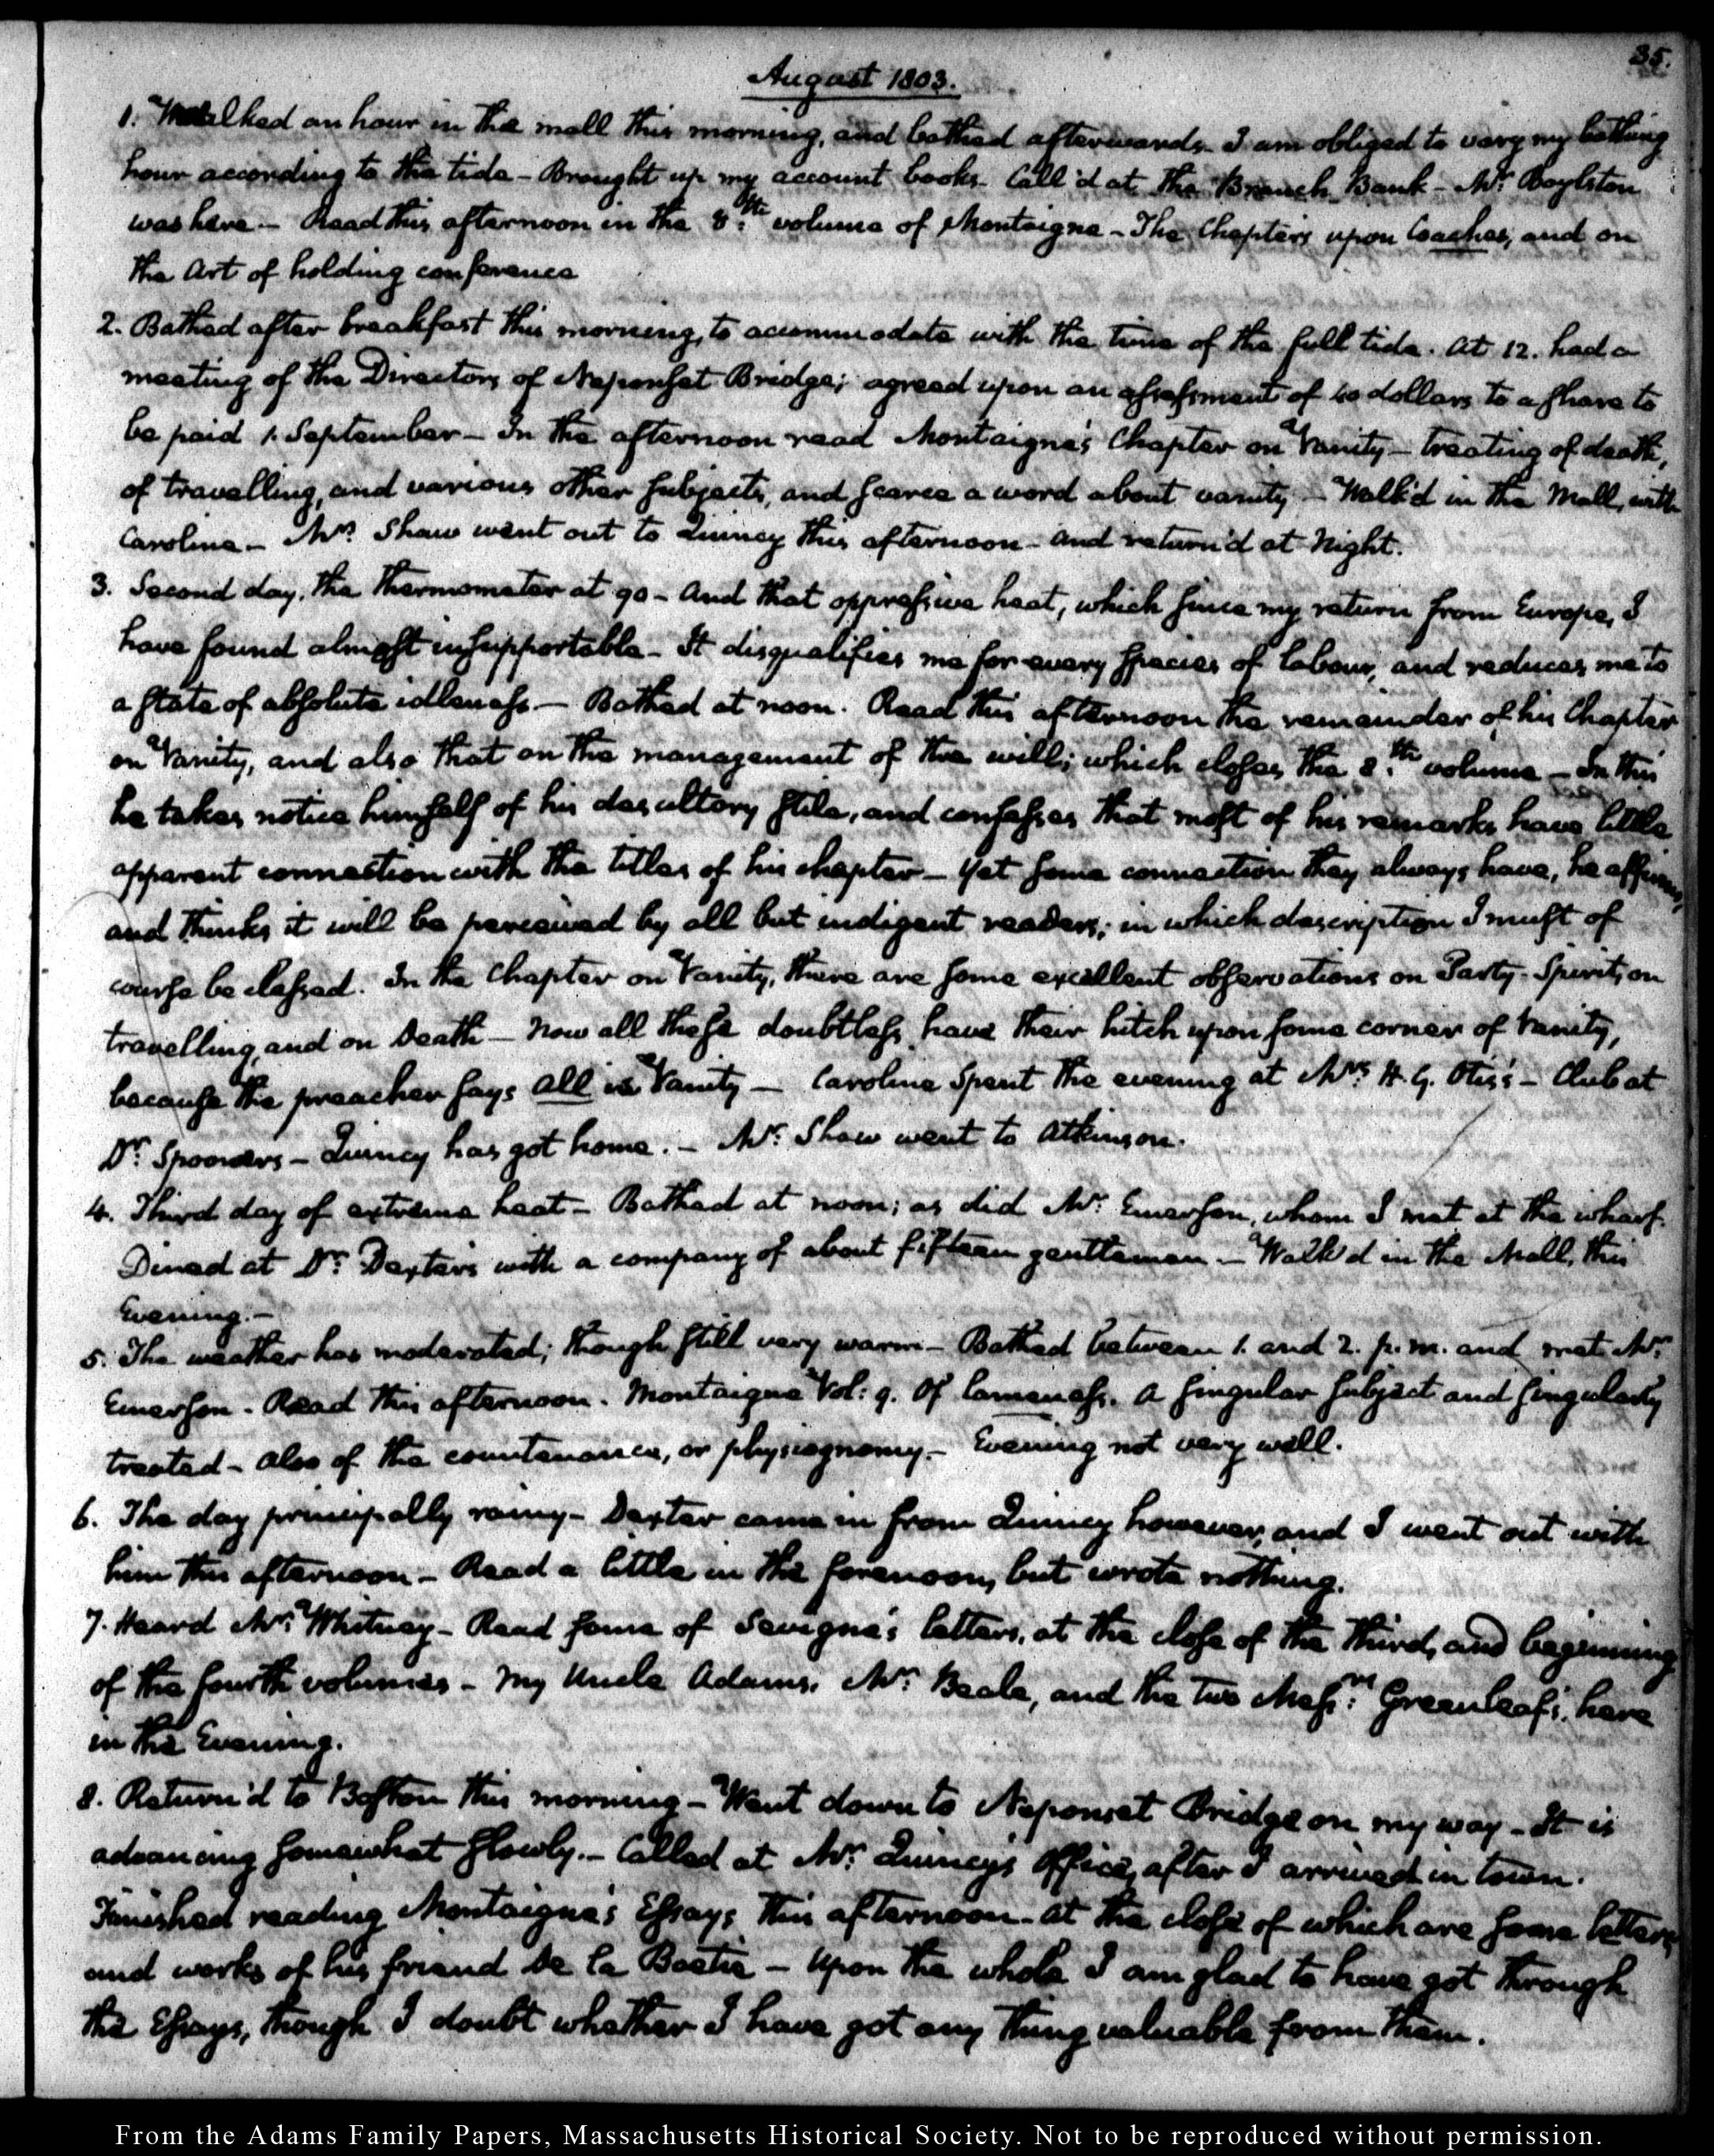 35.
August 1803.
1. Walked an hour in the mall this morning, and bathed afterwards. I am obliged to vary my bathing
hour according to the tide - Brought up my account books. Call'd at the Branch Bank - Mr. Boylston
was here. - Read this afternoon in the 8.th volume of Montaigne - The Chapters upon Coaches, and on
the Art of holding conference
2. Bathed after breakfast this morning, to accommodate with the time of the full tide. At 12. had a
meeting of the Directors of Neponset Bridge; agreed upon an assessment of 40 dollars to a share to
be paid 1. September - In the afternoon read Montaigne's Chapter on Vanity - treating of death,
of travelling, and various other subjects, and scarce a word about vanity. - Walk'd in the Mall, with
Caroline - Mr. Shaw went out to Quincy this afternoon - and return'd at Night.
3. Second day, the thermometer at 90 - And that oppressive heat, which since my return from Europe, I
have found almost insupportable - It disqualifies me for every species of labour, and reduces me to
a state of absolute idleness. - Bathed at noon. Read this afternoon the remainder of his Chapter
on Vanity, and also that on the management of the will; which closes the 8.th volume - In this
he takes notice himself of his desultory stile, and confesses that most of his remarks have little
apparent connection with the titles of his chapter - Yet some connection they always have, he affirms,
and thinks it will be perceived by all but indigent readers; in which description I must of
course be classed. In the Chapter on Vanity, there are some excellent observations on Party-Spirit, on
travelling, and on Death - Now all these doubtless have their hitch upon some corner of Vanity,
because the preacher says all is Vanity - Caroline Spent the evening at Mrs. H. G. Otis's - Club at
Dr. Spooner's - Quincy has got home. - Mr. Shaw went to Atkinson.
4. Third day of extreme heat - Bathed at noon; as did Mr. Emerson, whom I met at the wharf.
Dined at Dr. Dexter's with a company of about fifteen gentlemen - Walk'd in the Mall, this
Evening. -
5. The weather has moderated; though still very warm - Bathed between 1. and 2. p.m. and met Mr.
Emerson. Read this afternoon. Montaigne Vol: 9. Of lameness. A singular subject and singularly
treated - also of the countenance, or physiognomy - Evening not very well.
6. The day principally rainy - Dexter came in from Quincy however, and I went out with
him this afternoon - Read a little in the forenoon, but wrote nothing.
7. Heard Mr. Whitney - Read some of Sevigne's letters, at the close of the third, and beginning
of the fourth volumes - My Uncle Adams, Mr. Beale, and the two Mess.rs Greenleafs, here
in the Evening.
8. Return'd to Boston this morning - Went down to Neponset Bridge on my way - It is
advancing somewhat slowly. - Called at Mr. Quincy's Office, after I arrived in town.
Finished reading Montaigne's Essays this afternoon - at the close of which are some letters,
and works of his friend De la Boetie - Upon the whole I am glad to have got through
the Essays, though I doubt whether I have got any thing valuable from them.
From the Adams Family Papers, Massachusetts Historical Society. Not to be reproduced without permission.